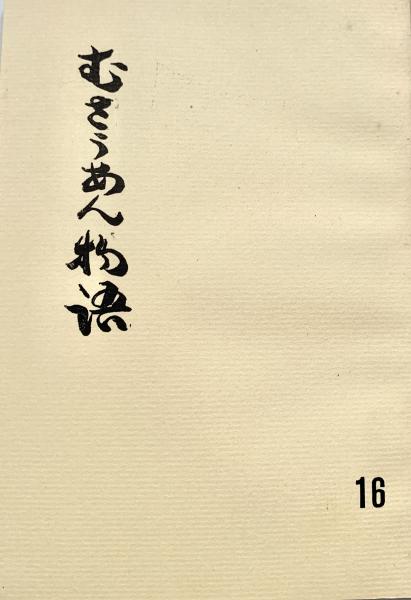 むさうあん物語
16